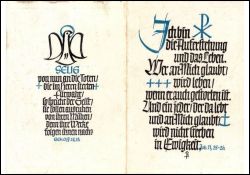 SELIG
von nun an die Toten,
die im Herrn sterben
Fürwahr,
so spricht der Geist,
sie sollen ausruhen
von ihren Mühen,
denn ihre Werke
folgen ihnen nach.
Ich bin
die Auferstehung
und das Leben.
Wer an Mich glaubt,
wird leben,
wenn er auch gestorben ist.
Und ein jeder, der da lebt
und an Mich glaubt,
wird nicht sterben
in Ewigkeit.
Joh. 11, 25-26